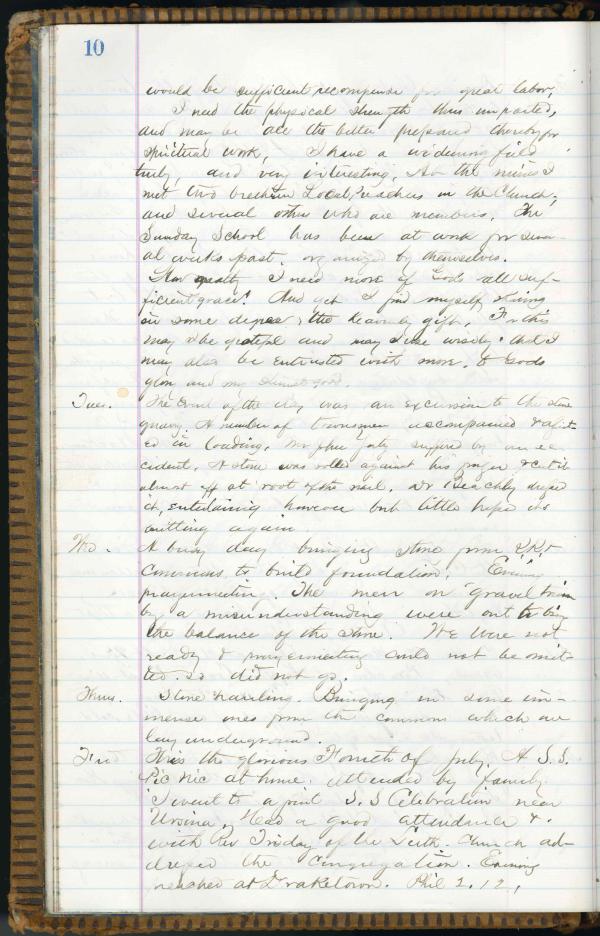 10
would be sufficient recompense for great labor,
I need the physical strength thus imparted,
and may be all the better prepared thereby for
spiritual work, I have a widening field
truly and very interesting. At the mines I
met two brethren Local Preachers in the Church,
and several others who are members. The
Sunday School has been at work for sever-
al weeks past. organized by themselves.
How greatly I need more of Gods all suf-
ficient grace! And yet I find myself
in some degree, the heavenly gift. For this
may I be grateful and may I use wisely that I
may also be entrusted with more, to Gods
glory and my good.
Tues. The event of the day was an excursion to the stone
quarry. A number of townsmen accompanied & assist-
ed in loading. suffered by an ac-
cident. A stone was rolled against his finger & cut it
almost off at root of the nail. Dr Beachley dressed
it, entertaining however but little hope its
knitting again.
Wed. A busy day bringing stone from R.R. &
commons to build foundation. Evening
prayermeeting. The men on gravel train
by a misunderstanding were out to bring
the balance of the stone. We were not
ready & prayermeeting could not be omit-
ted. so did not go.
Thurs. Stone hauling. Bringing in some im-
mense ones from the commons which are
lay underground.
Frid This the glorious Fourth of July. A S.S.
Pic Nic at home. Attended by family.
I went to a joint S.S Celebration near
Ursina. Had a good attendance &.
with Rev Friday of the Luth. Church ad-
dressed the congregation. Evening
preached at Draketown. Phil 2. 12,